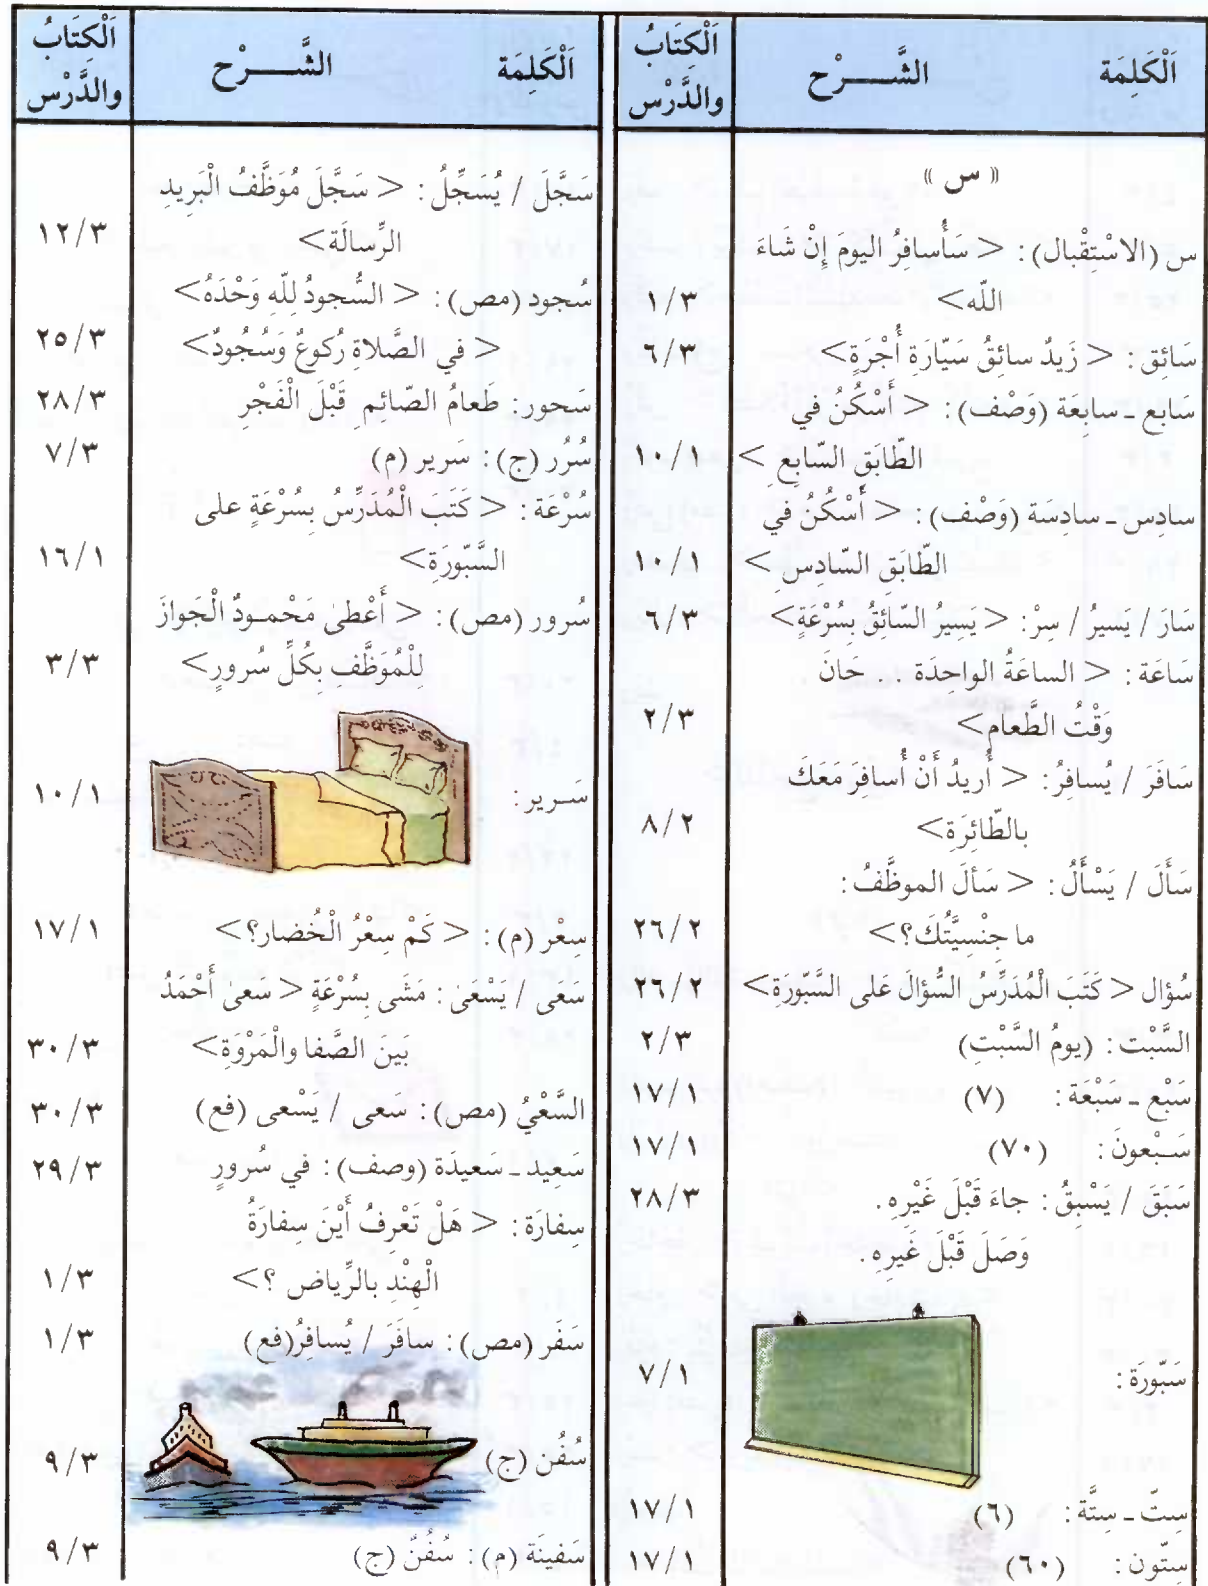 اَلْكَلِمَة الشَّــــرْح اَلْكِتَابُ والدَّرْس
« س »
س (الاسْتِقْبال): < سَأُسافِرُ اليومَ إِنْ شَاءَ
اللّه> ١/٣
سَائِق: < زَيدٌ سائِقُ سَيّارَةِ أُجْرَةٍ> ٦/٣
سابع ـ سابِعَة (وَصْف): < أَسْكُنُ في
الطّابَقِ السّابِعِ > ١٠/١
سادِس ـ سادِسَة (وَصْف): < أَسْكُنُ في
الطّابَقِ السّادِسِ > ١٠/١
سَارَ / يَسيرُ / سِرْ: < يَسِيرُ السّائِقُ بِسُرْعَةٍ> ٦/٣
سَاعَة: < الساعَةُ الواحِدَة .. حَانَ
وَقْتُ الطَّعامِ> ٢/٣
سَافَرَ / يُسافِرُ: < أُريدُ أَنْ أُسافِرَ مَعَكَ
بالطّائِرَةِ> ٨/٢
سَأَلَ / يَسْأَلُ: < سَألَ الموظَّفُ:
ما جِنْسِيَّتُكَ؟> ٢٦/٢
سُؤال < كَتَبَ الْمُدَرِّسُ السُّؤالَ عَلى السَّبّورَةِ> ٢٦/٢
السَّبْت: (يومُ السَّبْتِ) ٢/٣
سَبْع ـ سَبْعَة: (٧) ١٧/١
سَـبْعونَ: (٧٠) ١٧/١
سَبَقَ / يَسْبِقُ: جاءَ قَبْلَ غَيْرِهِ. ٢٨/٣
وَصَلَ قَبْلَ غَيرِهِ.
سَبّورَة: ٧/١
سِتّ ـ سِتَّة: (٦) ١٧/١
سِتّون: (٦٠) ١٧/١
اَلْكَلِمَة الشَّــــرْح اَلْكِتَابُ والدَّرْس
سَجَّلَ / يُسَجِّلُ: < سَجَّلَ مُوَظَّفُ الْبَرِيدِ
الرِّسالَة> ١٢/٣
سُجود (مص): < السُّجودُ لِلّهِ وَحْدَهُ>
< في الصَّلاةِ رُكوعٌ وَسُجُودٌ> ٢٥/٣
سَحور: طَعامُ الصّائِمِ قَبْلَ الْفَجْرِ ٢٨/٣
سُرُر (ج): سَرير (م) ٧/٣
سُرْعَة: < كَتَبَ الْمُدَرِّسُ بِسُرْعَةٍ على
السَّبّورَةِ> ١٦/١
سُرور (مص): < أَعْطىٰ مَحْمـودٌ الْجَوازَ
لِلْمُوَظَّفِ بِكُلِّ سُرورٍ> ٣/٣
سَـرير: ١٠/١
سِعْر (م): < كَمْ سِعْرُ الْخُضار؟> ١٧/١
سَعَى / يَسْعَىٰ: مَشَى بِسُرْعَةٍ < سَعىٰ أَحْمَدُ
بَينَ الصَّفا والْمَرْوَةِ> ٣٠/٣
السَّعْيُ (مص): سَعى / يَسْعى (فع) ٣٠/٣
سَعِيد ـ سَعيدَة (وصف): في سُرورٍ ٢٩/٣
سِفارَة: < هَلْ تَعْرِفُ أَيْنَ سِفارَةُ
الْهِنْدِ بالرِّياض ؟> ١/٣
سَفَر (مص): سافَرَ / يُسافِرُ(فع) ١/٣
سُفُن (ج) ٩/٣
سَفينَة (م): سُفُنٌ (ج) ٩/٣